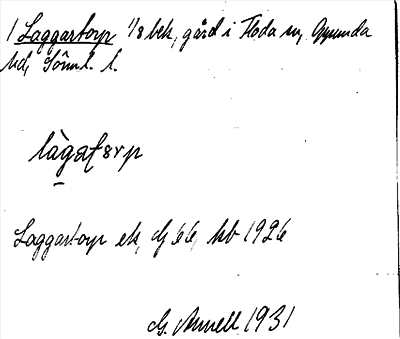 1 Laggartorp 1/8 bek, gård i Floda sn, Oppunda
hd, Söml. l.
làgaʈorp
Laggartorp ek, Gf 66, kb 1926
G. Annell 1931